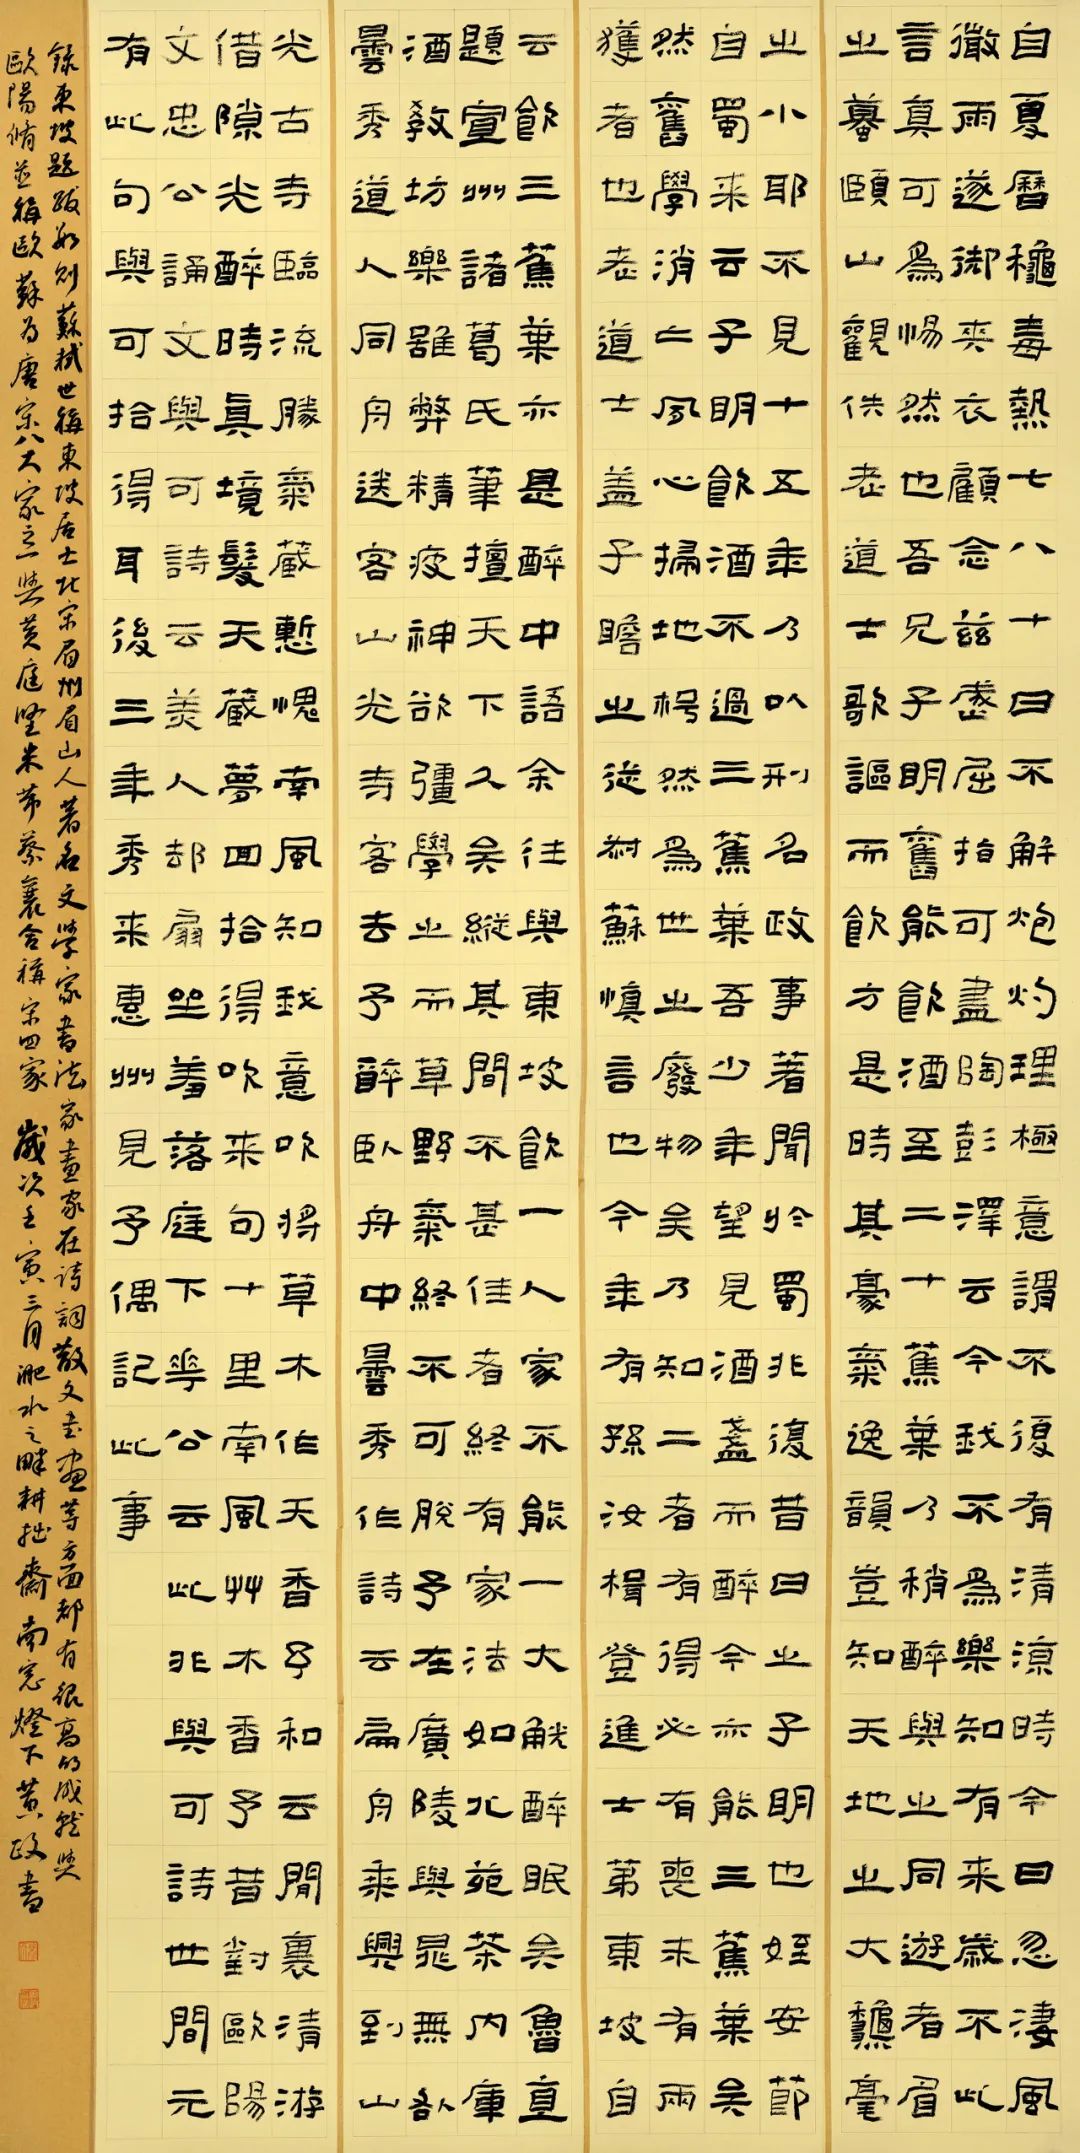 自夏曆龝毒熱七八十日不解炮灼理極意謂不復有清涼時今日忽淒風
微雨遂御夾衣顧念茲歲屈指可盡陶彭澤云今我不為樂知有来歲不此
言真可為惕然也吾兄子明舊能飲酒至二十蕉葉乃稍醉與之同遊者眉
之蟇頤山觀佚老道士歌謳而飲方是時其豪氣逸韻豈知天地之大龝毫
之小耶不見十五年乃以刑名政事著聞於蜀非復昔日之子明也姪安節
自蜀来云子明飲酒不過三蕉葉吾少年望見酒盞而醉今亦能三蕉葉矣
然舊學消亡夙心掃地枵然為世之廢物矣乃知二者有得必有喪未有兩
獲者也老道士蓋子瞻之從叔蘇慎言也今年有孫汝楫登進士第東坡自
云飲三蕉葉亦是醉中語余往與東坡飲一人家不能一大觥醉眠矣魯直
題宣州諸葛氏筆擅天下久矣縱其間不甚佳者終有家法如北苑茶內庫
酒教坊樂雖弊精疲神欲彊學之而草野氣終不可脫予在廣陵與晁無咎
曇秀道人同舟送客山光寺客去予醉臥舟中曇秀作詩云扁舟乘興到山
光古寺臨流勝氣藏慙愧南風知我意吹將草木作天香予和云閒裏清游
借隙光醉時真境髮天藏夢回拾得吹来句十里南風艸木香予昔對歐陽
文忠公誦文與可詩云美人却扇坐羞落庭下花公云此非與可詩世間元
有此句與可拾得耳後三年秀来惠州見予偶記此事
錄東坡題跋數則蘇軾世稱東坡居士北宋眉州眉山人著名文學家書法家畫家在詩詞散文書畫等方面都有很高的成就與
歐陽脩並稱歐蘇為唐宋八大家之一與黃庭堅米芾蔡襄合稱宋四家歲次壬寅三月淝水之畔耕拙齋南窓燈下黃政書